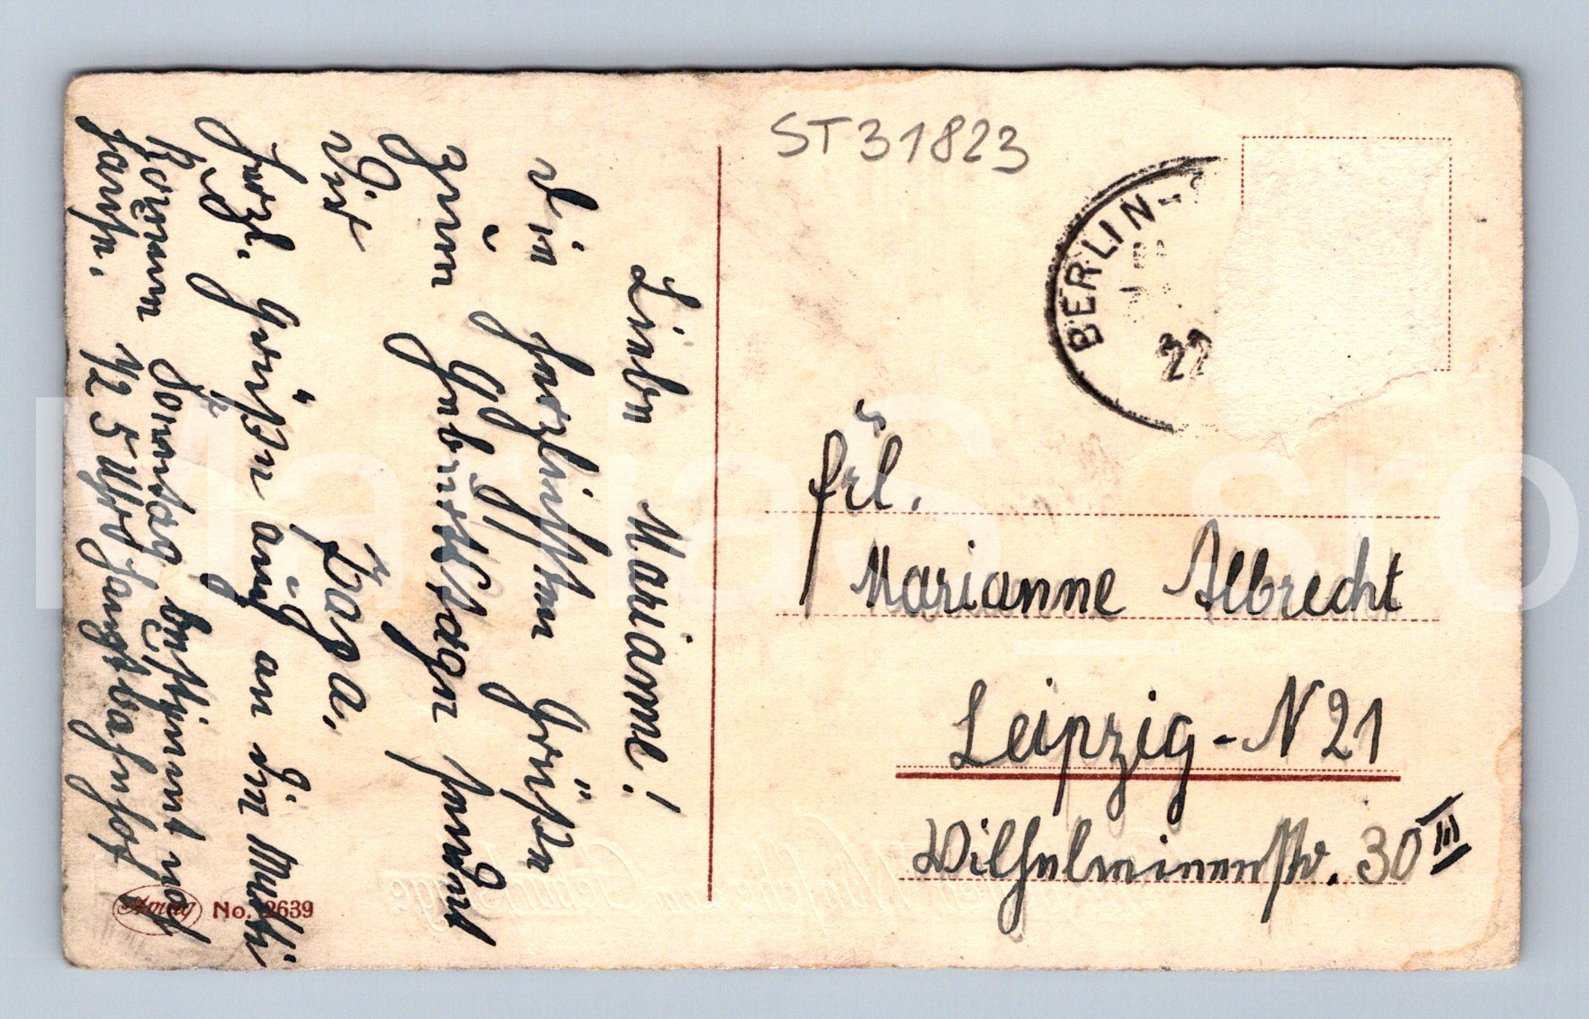 ST31823
BERLIN-
22
Frl.
Marianne Albrecht
Leipzig - N 21
Wilhelminenstr. 30 III
Liebe Marianne!
Die herzlichsten Grüße
zum Geburtstage sendet
Dir
Papa.
Herzl. Grüße auch an die Mutti
Komme Sonntag bestimmt nach
Hause. 1/2 5 Uhr Hauptbahnhof
No. 2639
MariaS_sro